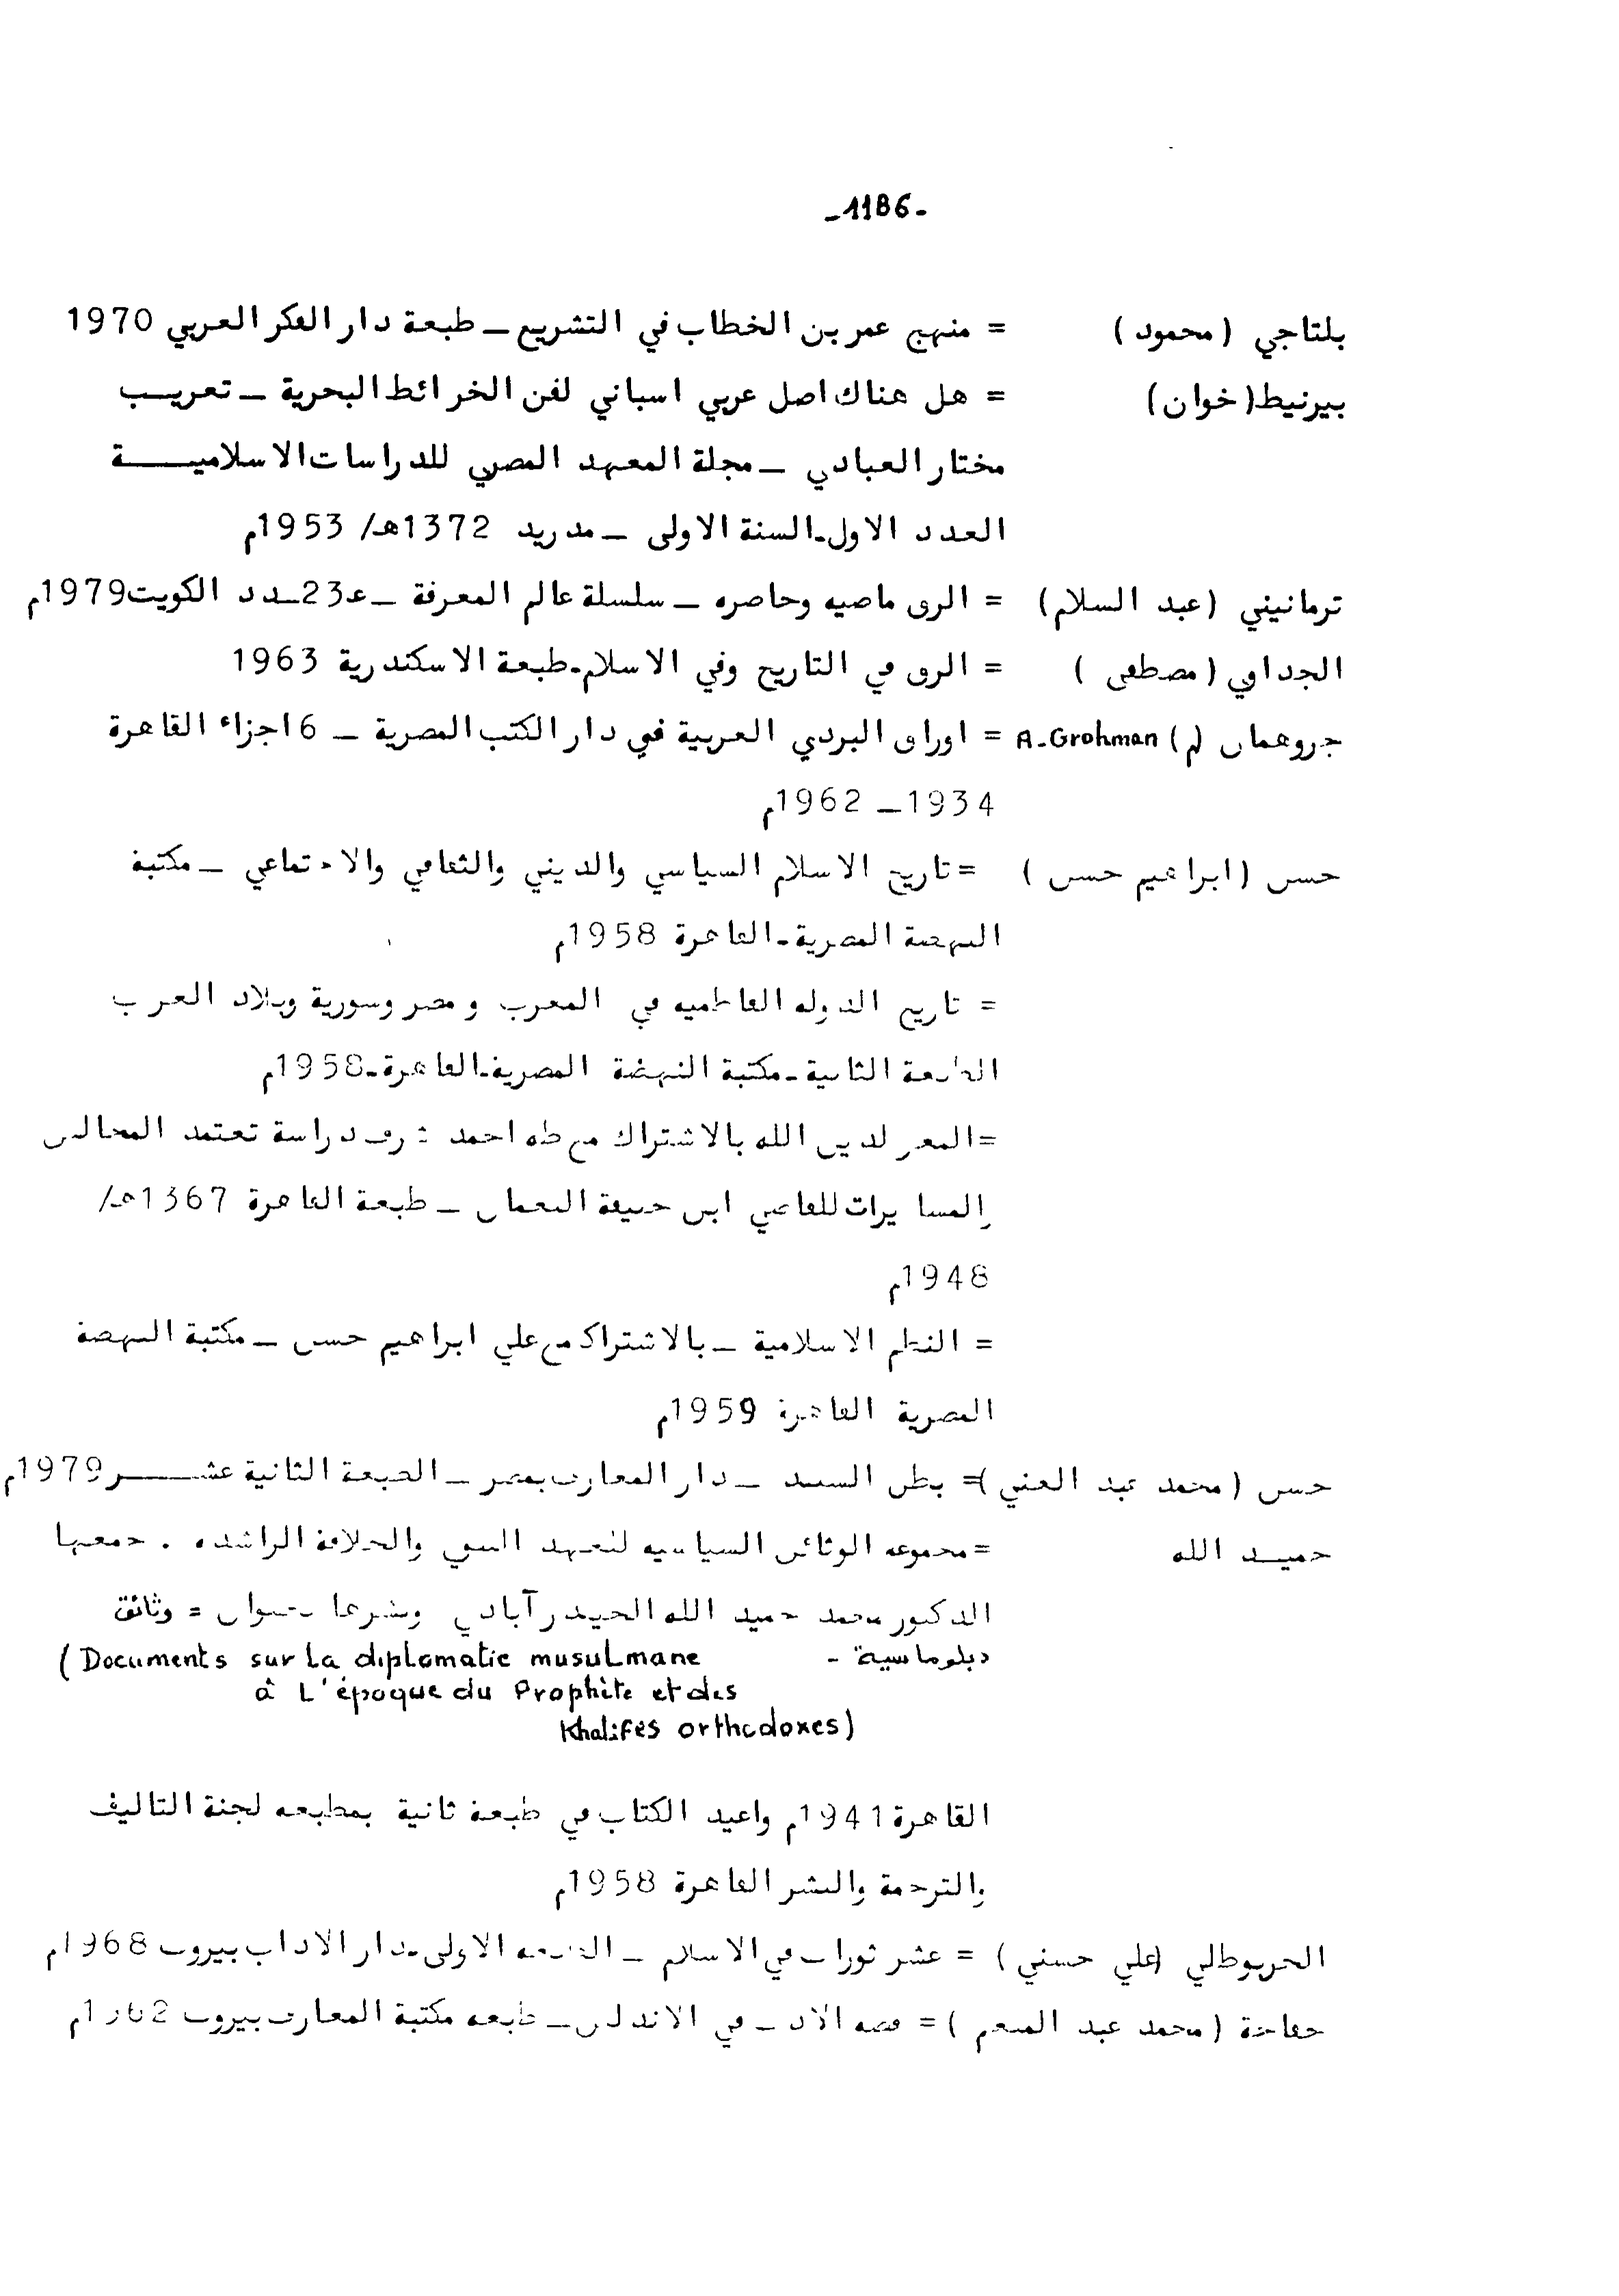 -1186-
بلتاجي (محمود) = منهج عمر بن الخطاب في التشريع ــ طبعة دار الفكر العربي 1970
بيرنيط (خوان) = هل هناك اصل عربي اسباني لفن الخرائط البحرية ــ تعريب
مختار العبادي ــ مجلة المعهد المصري للدراسات الاسلامية
العدد الاول ـ السنة الاولى ــ مدريد 1372هـ/ 1953م
ترمانيني (عبد السلام) = الرق ماضيه وحاضره ــ سلسلة عالم المعرفة ــ عـ23ـدد الكويت 1979م
الجداوي (مصطفى) = الرق في التاريخ وفي الاسلام ـ طبعة الاسكندرية 1963
جروهمان (م) A.Grohman = اوراق البردي العربية في دار الكتب المصرية ــ 6 اجزاء القاهرة
1934 ــ 1962م
حسن (ابراهيم حسن) = تاريخ الاسلام السياسي والديني والثقافي والاجتماعي ــ مكتبة
النهضة المصرية ـ القاهرة 1958م
= تاريخ الدوله الفاطميه في المغرب و مصر وسورية وبلاد العرب
الطبعة الثانية ـ مكتبة النهضة المصرية ـ القاهرة ـ 1958م
= المعز لدين الله بالاشتراك مع طه احمد شرف دراسة تعتمد المجالس
والمسايرات للقاضي ابن حنيفة النعمان ــ طبعة القاهرة 1367هـ/
1948م
= النظم الاسلامية ــ بالاشتراك مع علي ابراهيم حسن ــ مكتبة النهضة
المصرية القاهرة 1959م
حسن (محمد عبد الغني) = بطل السند ــ دار المعارف بمصر ــ الطبعة الثانية عشر 1979م
حميد الله = مجموعه الوثائق السياسيه للعهد النبوي والخلافة الراشده . جمعها
الدكتور محمد حميد الله الحيدر آبادي ونشرها بعنوان = وثائق
دبلوماسية - (Documents sur la diplomatie musulmane
à L'époque du Prophète et des
Khalifes orthodoxes)
القاهرة 1941م واعيد الكتاب في طبعة ثانية بمطبعه لجنة التاليف
والترجمة والنشر القاهرة 1958م
الخربوطلي (علي حسني) = عشر ثورات في الاسلام ــ الطبعه الاولى ـ دار الاداب بيروت 1968م
خفاجة (محمد عبد المنعم) = قصه الادب في الاندلس ــ طبعه مكتبة المعارف بيروت 1962م